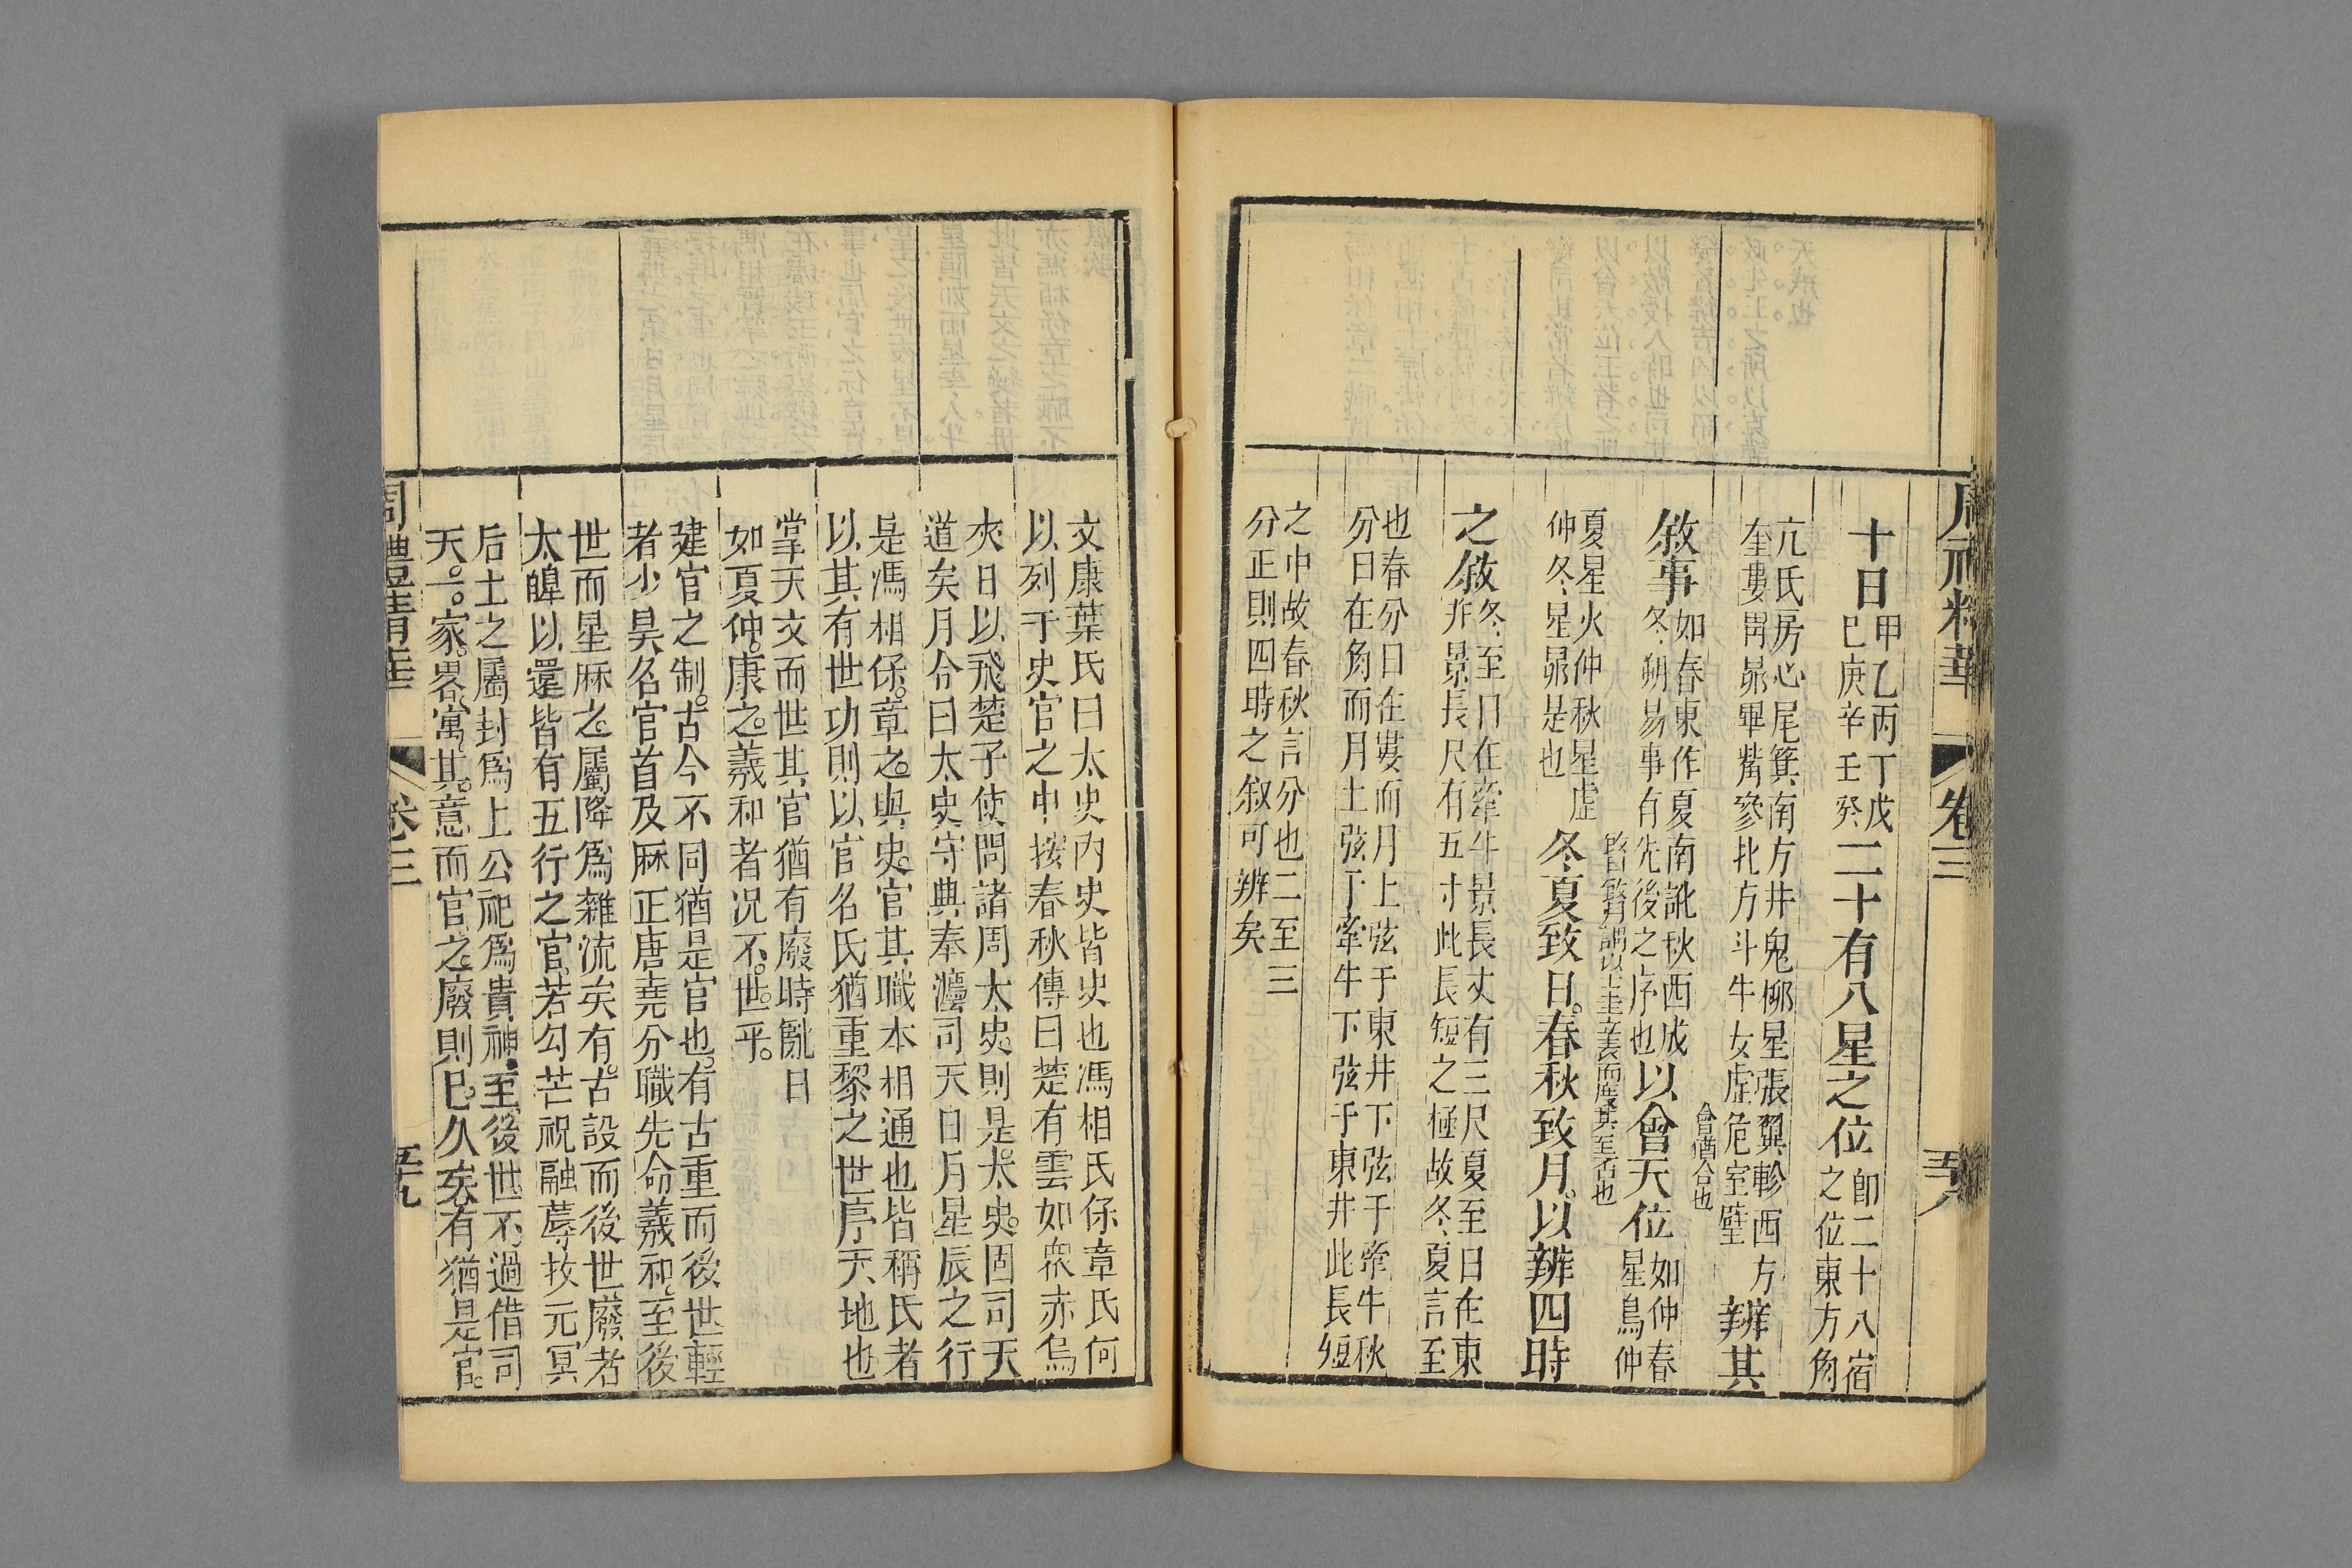 周禮精華　卷三　五十八
十日甲乙丙丁戊
己庚辛壬癸二十有八星之位即二十八宿
之位東方角
亢氐房心尾箕南方井鬼柳星張翼軫西方
奎婁胃昴畢觜參北方斗牛女虛危室壁辨其
會猶合也
敘事如春東作夏南訛秋西成
冬朔易事有先後之序也以會天位如仲春
星鳥仲
謂以土圭立表而度其至否也
夏星火仲秋星虛
仲冬星昴是也冬夏致日。春秋致月。以辨四時
之敘冬至日在牽牛景長丈有三尺夏至日在東
井景長尺有五寸此長短之極故冬夏言至
也春分日在婁而月上弦于東井下弦于牽牛秋
分日在角而月上弦于牽牛下弦于東井此長短
之中故春秋言分也二至三
分正則四時之叙可辨矣
文康葉氏曰太史內史皆史也馮相氏保章氏何
以列于史官之中按春秋傳曰楚有雲如衆赤烏
夾日以飛楚子使問諸周太史則是太史固司天
道矣月令曰太史守典奉灋司天日月星辰之行
是馮相保章之與史官其職本相通也皆稱氏者
以其有世功則以官名氏猶重黎之世序天地也
掌天文而世其官猶有廢時亂日
如夏仲康之羲和者况不世乎。
建官之制。古今不同猶是官也。有古重而後世輕
者少昊名官首及厤正唐堯分職先命羲和至後
世而星厤之屬降爲雜流矣有古設而後世廢者
太皞以還皆有五行之官若勾芒祝融蓐收元冥
后土之屬封爲上公祀爲貴神至後世不過借司
天一家畧寓其意而官之廢則已久矣有猶是官。
周禮精華　卷三　五十九